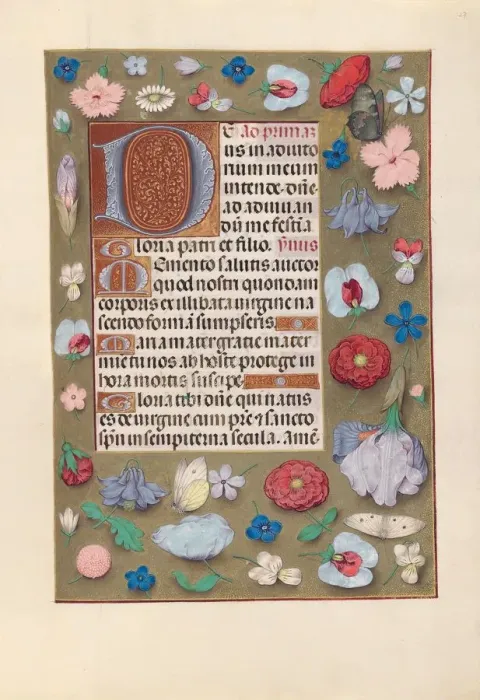 DE ad primaz
us in adiuto
rium meum
intende. dñe
ad adiuuan
dū me festia
Gloria patri et filio. ymus
Memento salutis auctor
quod nostri quondam
corporis ex illibata uirgine na
scendo formā sumpseris.
Maria mater gratie mater
mie tu nos ab hoste protege in
hora mortis suscipe.
Gloria tibi dñe qui natus
es de uirgine cum pr̄e ⁊ sancto
sp̄u in sempiterna secula. Amē